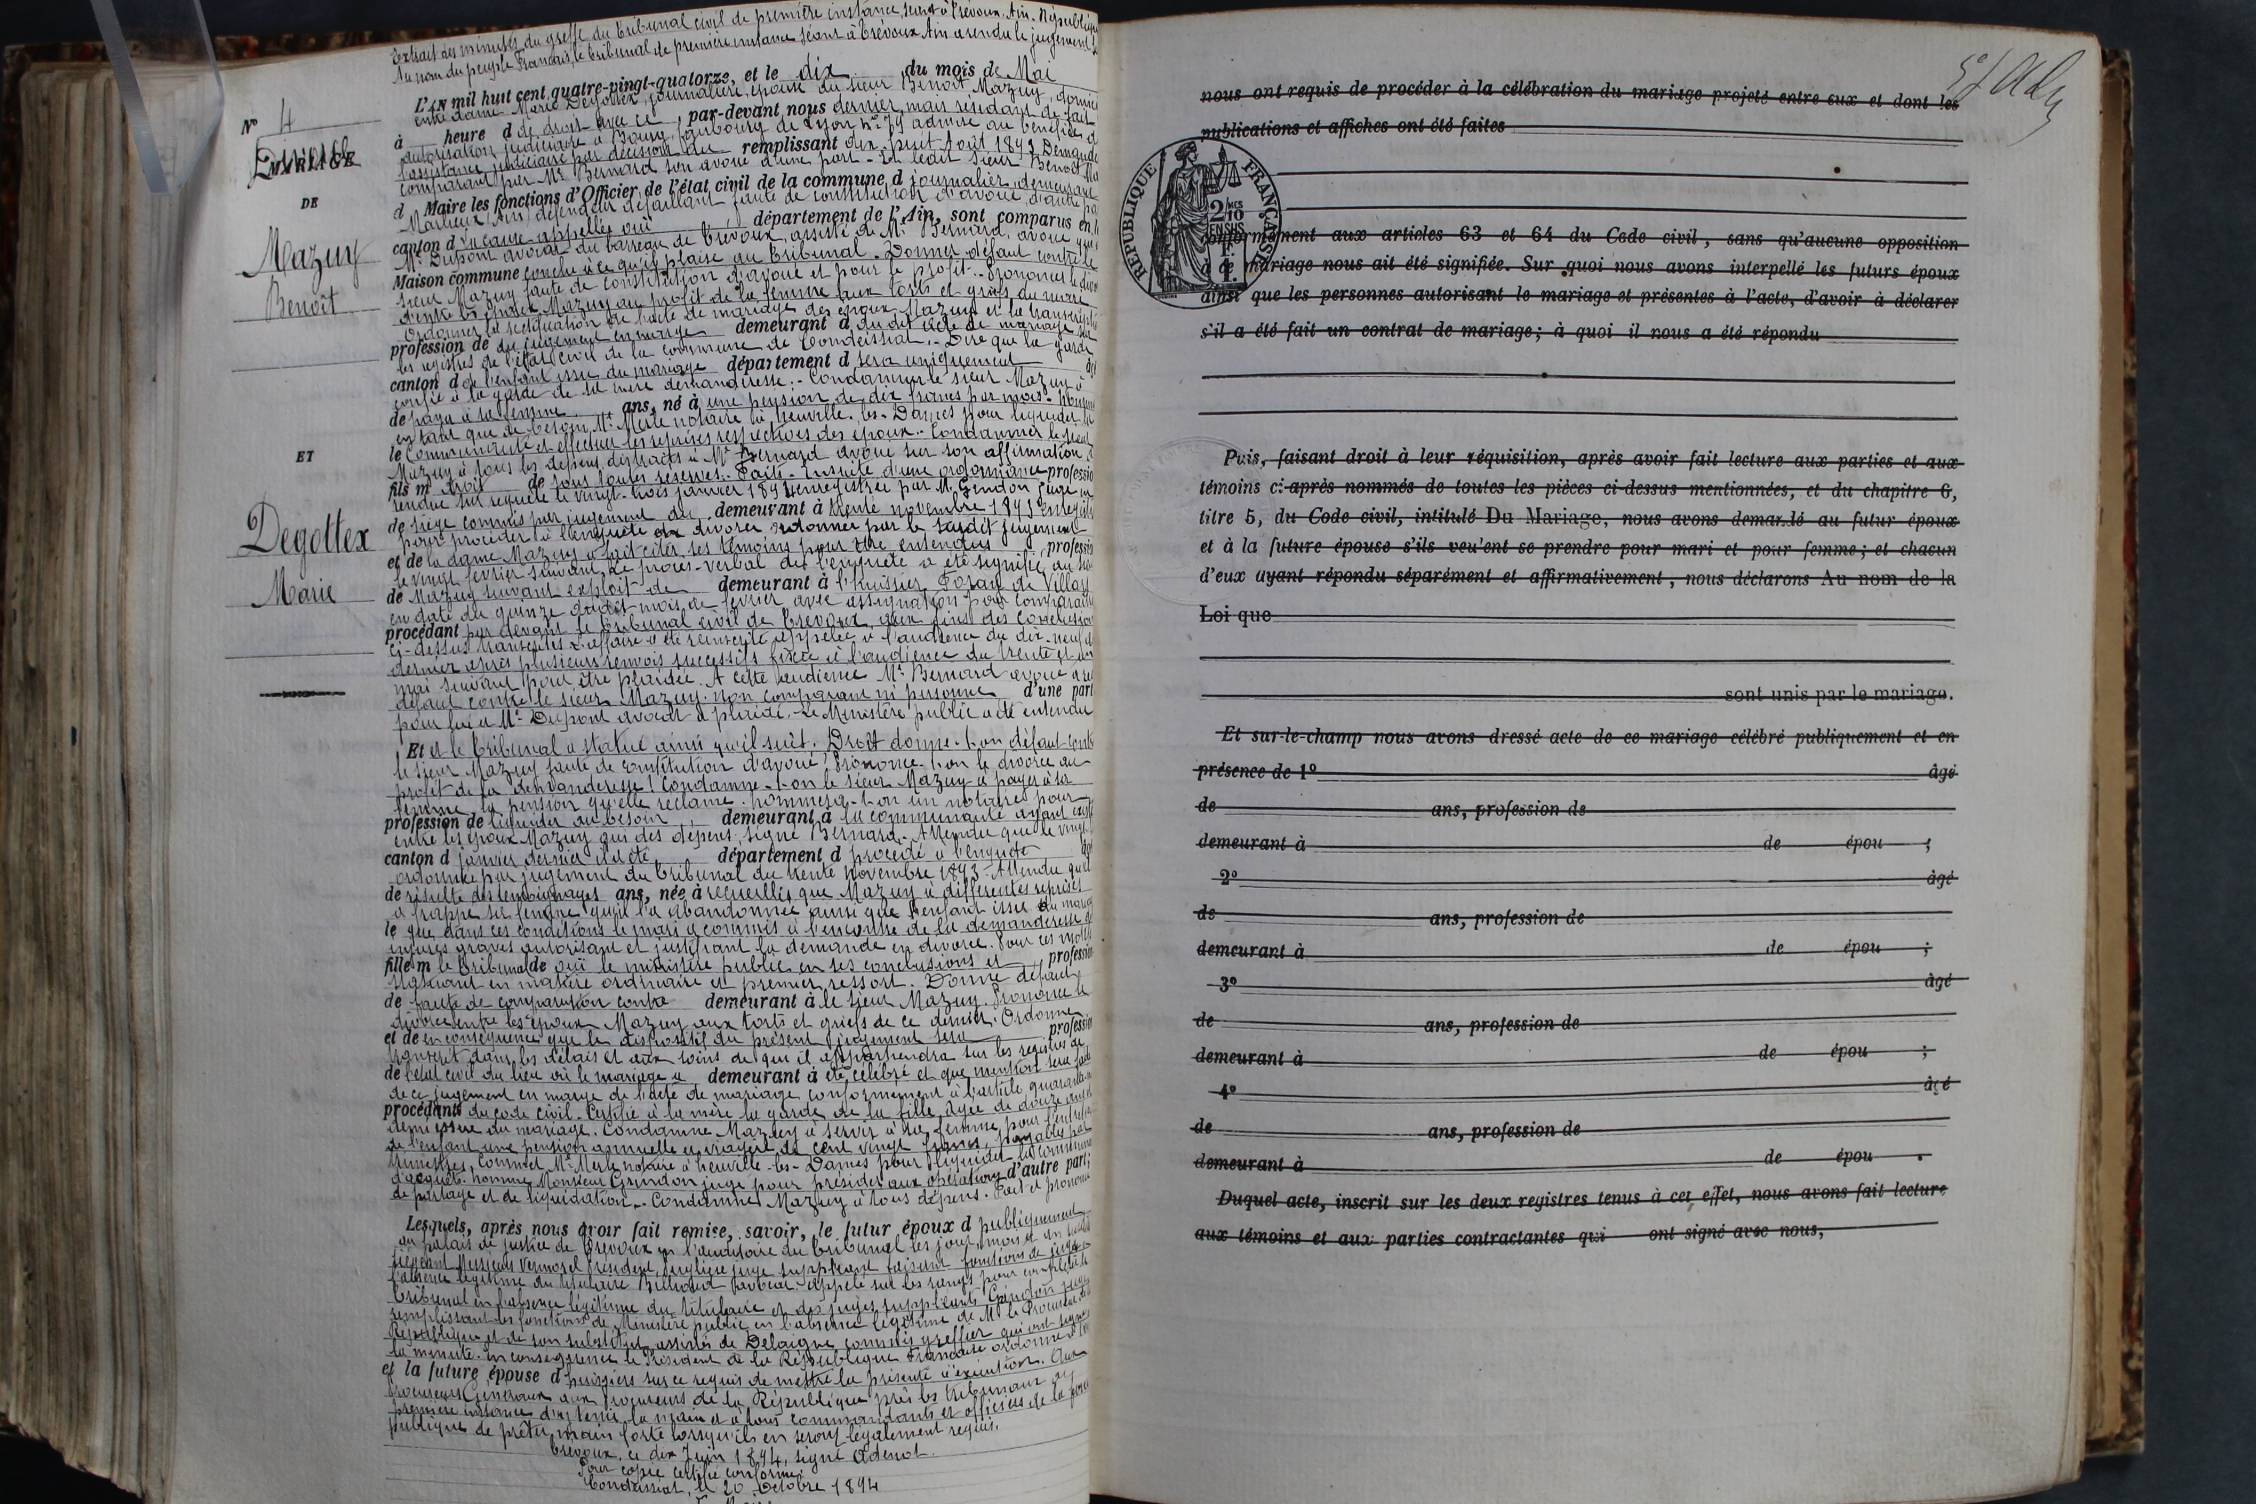 Extrait des minutes du greffe du tribunal civil de première instance, séant à Trévoux, Ain. République
Au nom du peuple Français, le tribunal de première instance séant à Trévoux Ain a rendu le jugement
L'AN mil huit cent quatre-vingt-quatorze, et le dix du mois de Mai
entre dame Marie Degottex, journalière, épouse du sieur Benoît Mazuy,
à heure d de droit avec ce, par-devant nous dernier mais résidant de fait
autorisation judiciaire à Bourg, faubourg de Lyon n° 79 admise au bénéfice d
l'assistance judiciaire par décision du remplissant dix-huit Août 1893 Demande
comparant par Mr Bernard son avoué d'une part - Et ledit sieur Benoît Ma
d Maire les fonctions d'Officier de l'état civil de la commune d journalier, demeurant
Marlieux (Ain) défendeur défaillant faute de constitution d'avoué, d'autre pa
canton d La cause appellée ouï département de l'Ain, sont comparus en
Mr Dupont avocat du barreau de Trévoux, assisté de Mr Bernard, avoué qui
Maison commune conclu à ce qu'il plaise au tribunal. Donner défaut contre le
sieur Mazuy faute de constitution d'avoué et pour le profit. Prononcer le divor
d'entre les époux Mazuy au profit de la femme aux torts et griefs du mari
Ordonner la rectification de l'acte de mariage des époux Mazuy et la transcripti
profession de du jugement en marge demeurant à du dit acte de mariage sur
les registres de l'état civil de la commune de Condeissiat. - Dire que la garde
canton d de l'enfant issu du mariage département d sera uniquement
confiée à la garde de sa mère demanderesse. - Condamner le sieur Mazuy à
de paya à sa femme ans, né à une pension de dix francs par mois. Nommer
en tant que de besoin, Mr Merle notaire à Neuville-les-Dames pour liquider
le communauté et effectuer les reprises respectives des époux. - Condamner le sieur
Mazuy à tous les dépens distraits à Mr Bernard avoué sur son affirmation
fils m droit de sous toutes réserves. Faits. Ensuite d'une ordonnance professio
rendue sur requête le vingt-trois janvier 1894 enregistrée par M. Grindon juge
de siège commis par jugement du demeurant à trente novembre 1893 enregist
pour procéder à l'enquête en divorce ordonnée par le susdit jugement
et de la dame Mazuy a fait citer ses témoins pour être entendus profession
le vingt février suivant. Le procès-verbal de l'enquête a été signifié au
de Mazuy suivant exploit de demeurant à l'huissier, de Villars
en date du quinze dudit mois de février avec assignation pour comparaître
procédant par devant le tribunal civil de Trévoux, aux fins des conclusions
ci-dessus transcrites. L'affaire a été ensuite appelée à l'audience du dix-neuf
dernier après plusieurs renvois successifs fixée à l'audience du trente et un
mai suivant pour être plaidée. A cette audience Mr Bernard avoué a
défaut contre le sieur Mazuy non comparant ni personne d'une part
pour lui et Mr Dupont avocat a plaidé. - Le Ministère public a été entendu
Et et le tribunal a statué ainsi qu'il suit. Droit donne-t-on défaut contre
le sieur Mazuy faute de constitution d'avoué, Prononce-t-on le divorce au
profit de la demanderesse ! Condamne-t-on le sieur Mazuy à payer à sa
femme la pension qu'elle réclame. nommera-t-on un notaire pour
profession de liquider au besoin demeurant à la communauté ayant existé
entre les époux Mazuy quid des dépens, signé Bernard. Attendu que le vingt
canton d janvier dernier il a été département d procédé à l'enquête
ordonnée par jugement du tribunal du trente novembre 1893 - Attendu qu'il
de résulte des témoignages ans, née à recueillis que Mazuy à différentes reprises
a frappé sa femme qu'il l'a abandonnée ainsi que l'enfant issu du mariage
le que dans ces conditions le mari a commis à l'encontre de la demanderesse de
injures graves autorisant et justifiant la demande en divorce. Pour ces motifs
fille m le tribunal de ouï le ministère public en ses conclusions et profession
statuant en matière ordinaire et premier ressort. Donne défaut
de faute de comparution contre demeurant à le sieur Mazuy. Prononce le
divorce entre les époux Mazuy aux torts et griefs de ce dernier. Ordonne
et de en conséquence que le dispositif du présent jugement sera profession
transcrit dans les délais et aux soins de qui il appartiendra sur les registres de
de l'état civil du lieu où le mariage a demeurant à été célébré et que mention sera faite
de ce jugement en marge de l'acte de mariage conformément à l'article quarante
procédant du code civil. Confie à la mère la garde de la fille âgée de douze ans
demi issue du mariage. Condamne Mazuy à servir à sa femme, pour l'entretien
de l'enfant une pension annuelle et viagère de cent vingt francs, payables par
trimestres, commet Mr Merle notaire à Neuville-les-Dames pour liquider la communauté
d'acquêts. nomme Monsieur Grindon juge pour présider aux opérations d'autre part;
de partage et de liquidation. - Condamne Mazuy à tous dépens. Fait et prononcé
Lesquels, après nous avoir fait remise, savoir, le futur époux d publiquement
au palais de justice de Trévoux en l'auditoire du tribunal les jour, mois et an
siégeant Messieurs Vermorel Président, juge suppléant faisant fonctions de juge
l'absence légitime du titulaire appelé sur les rangs pour compléter le
tribunal en l'absence légitime du titulaire et des juges suppléants Grindon juge
remplissant les fonctions de Ministère public en l'absence légitime de Mr le Procureur de la
République et de son substitut, assistés de Delaigue commis greffier qui ont signé
la minute. En conséquence le Président de la République Française ordonne à tous
et la future épouse d huissiers sur ce requis de mettre la présente à exécution. Aux
Procureurs Généraux aux Procureurs de la République près les tribunaux de
première instance d'y tenir la main et à tous commandants et officiers de la force
publique de prêter main forte lorsqu'ils en seront légalement requis.
Trévoux, ce dix Juin 1894, signé Adenot.
Pour copie certifiée conforme.
Condeissiat, le 20 Octobre 1894
N° 4
MARIAGE
Divorce
DE
Mazuy
Benoît
ET
Degottex
Marie
nous ont requis de procéder à la célébration du mariage projeté entre eux et dont les
publications et affiches ont été faites
RÉPUBLIQUE FRANÇAISE
2 MES
10
EN SUS
1 F.
conformément aux articles 63 et 64 du Code civil, sans qu'aucune opposition
à ce mariage nous ait été signifiée. Sur quoi nous avons interpellé les futurs époux
ainsi que les personnes autorisant le mariage et présentes à l'acte, d'avoir à déclarer
s'il a été fait un contrat de mariage; à quoi il nous a été répondu
Puis, faisant droit à leur réquisition, après avoir fait lecture aux parties et aux
témoins ci-après nommés de toutes les pièces ci-dessus mentionnées, et du chapitre 6,
titre 5, du Code civil, intitulé Du Mariage, nous avons demandé au futur époux
et à la future épouse s'ils veulent se prendre pour mari et pour femme; et chacun
d'eux ayant répondu séparément et affirmativement, nous déclarons Au nom de la
Loi que
sont unis par le mariage.
Et sur-le-champ nous avons dressé acte de ce mariage célébré publiquement et en
présence de 1° âgé
de ans, profession de
demeurant à de épou ;
2° âgé
de ans, profession de
demeurant à de épou ;
3° âgé
de ans, profession de
demeurant à de épou ;
4° âgé
de ans, profession de
demeurant à de épou .
Duquel acte, inscrit sur les deux registres tenus à cet effet, nous avons fait lecture
aux témoins et aux parties contractantes qui ont signé avec nous,